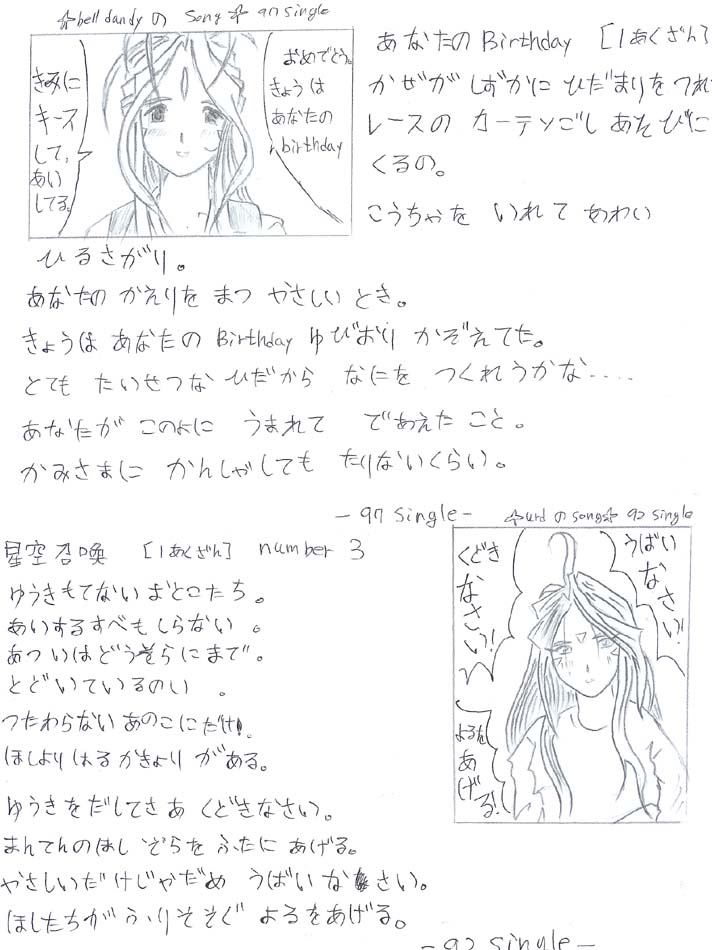 ☆bell dandyの Song☆ 97 single
きみに
キース
して,
あい
してる。
おめでとう。
きょうは
あなたの
birthday
あなたのBirthday [1あくざん]
かぜが しずかに ひだまりをつれ
レースの カーテンごし あそびに
くるの。
こうちゃを いれて あわい
ひるさがり。
あなたの かえりを まつ やさしい とき。
きょうは あなたの Birthday ゆびおり かぞえてた。
とても たいせつな ひだから なにを つくれうかな‥‥
あなたが このよに うまれて であえた こと。
かみさまに かんしゃしても たりないくらい。
-97 single-
☆urdのsong☆ 92 single
くどき
なさい!
うばい
なさい!
よるを
あげる!
星空召喚 [1あくざん] number 3
ゆうきもてない おとこたち。
あいするすべも しらない。
あついはどう そらにまで。
とどいているのい 。
つたわらない あのこにだけ!
ほしより はるかきょり がある。
ゆうきをだしてさあ くどきなさい。
まんてんのほし ぞらを ふたに あげる。
やさしいだけじゃだめ うばいなさい。
ほしたちがふりそそぐ よるをあげる。
-92 single-